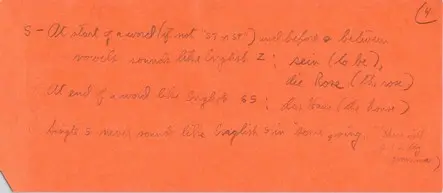 (4.
S - At start of a word (if not "ss or st") and before & between
vowels sounds like English Z; sein (to be),
die Rose (the rose)
At end of a word like English ss; das Haus (the house)
Single s never sounds like English s in